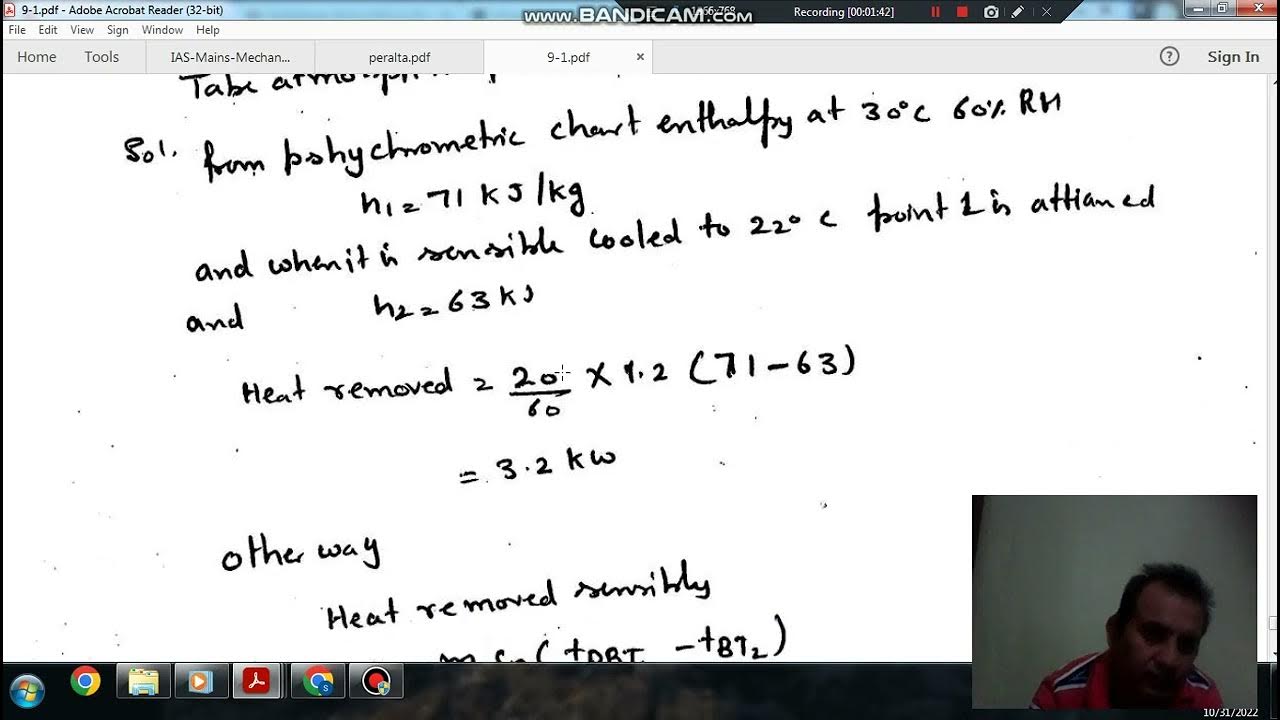 9-1.pdf - Adobe Acrobat Reader (32-bit)
www.BANDICAM.com
Recording [00:01:42]
File Edit View Sign Window Help
Home Tools IAS-Mains-Mechan... peralta.pdf 9-1.pdf × ? Sign In
Sol. from pshychrometric chart enthalpy at 30°C 60% RH
h1 = 71 kJ/kg
and when it is sensible cooled to 22°C point 1 is attianed
and h2 = 63 kJ
Heat removed = 20/60 × 1.2 (71-63)
= 3.2 kw
other way
Heat removed sensibly
(tDBT - tBT2)
10/31/2022